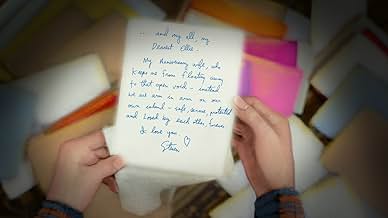 .. and my all, my
Dearest Ellie.
My Runaway wife, who
keeps me from floating away
to that open void - instead
we are arm in arm on our
own island - safe, serene, protected
and loved by each other, forever
I love you,
Steven